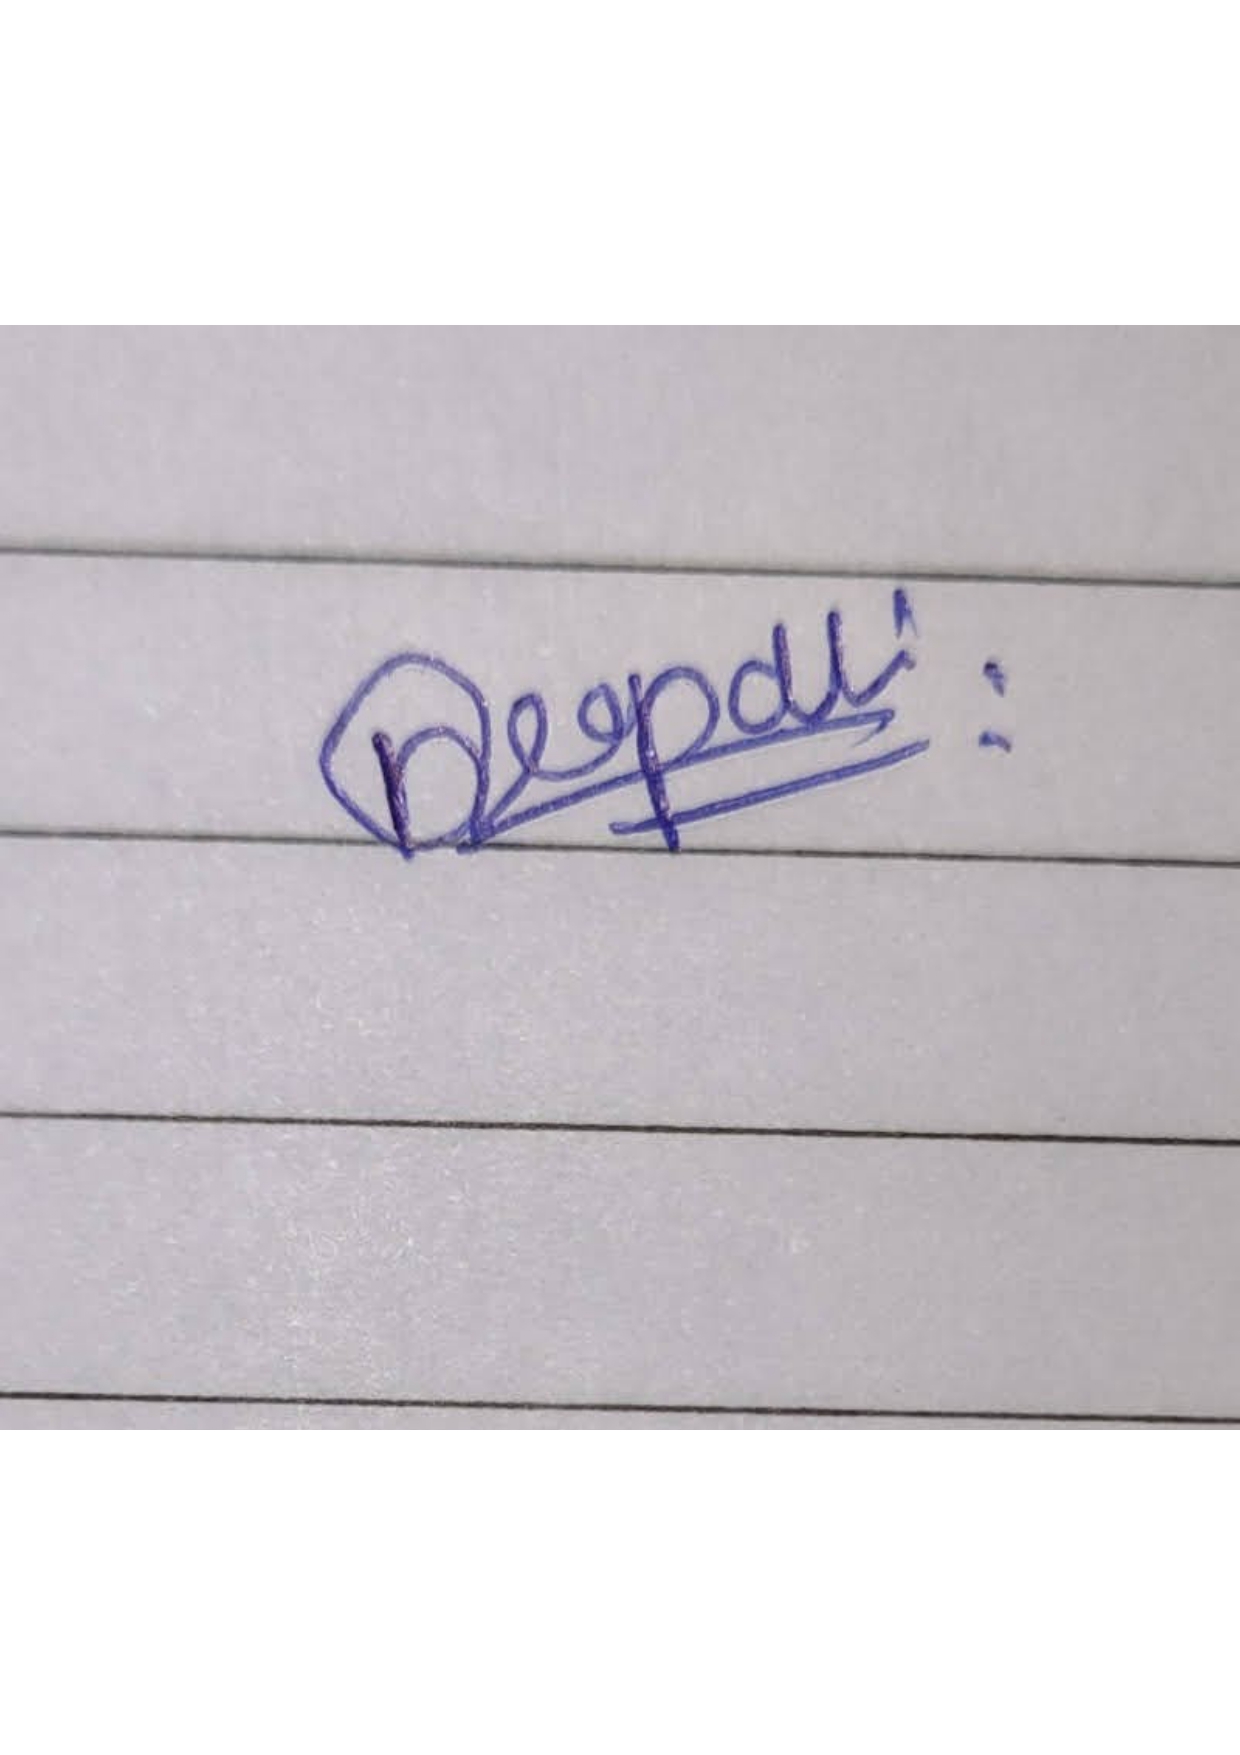 Deepali :